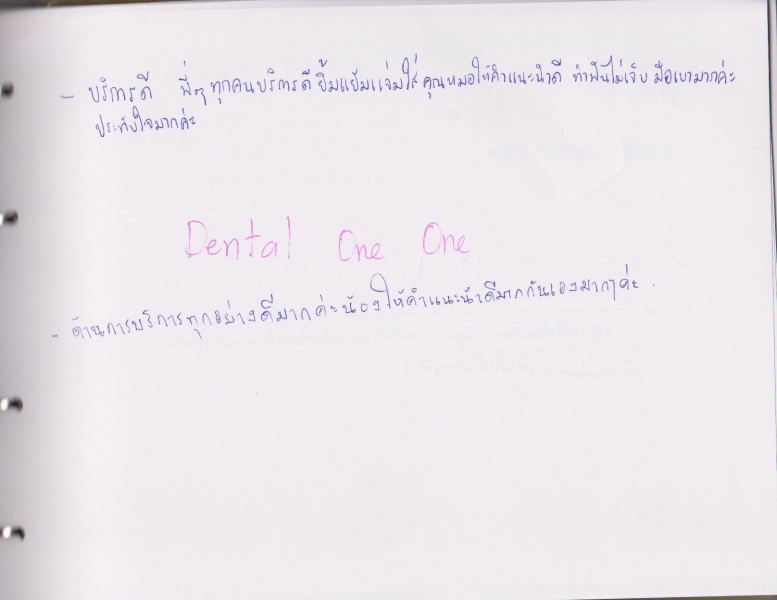 - บริการดี พี่ๆ ทุกคนบริการดี ยิ้มแย้มแจ่มใส่ คุณหมอให้คำแนะนำดี ทำฟันไม่เจ็บ มือเบามากค่ะ
ประทับใจมากค่ะ
Dental One One
- ด้านการบริการทุกอย่างดีมากค่ะน้องให้คำแนะนำดีมากกันเองมากๆค่ะ.